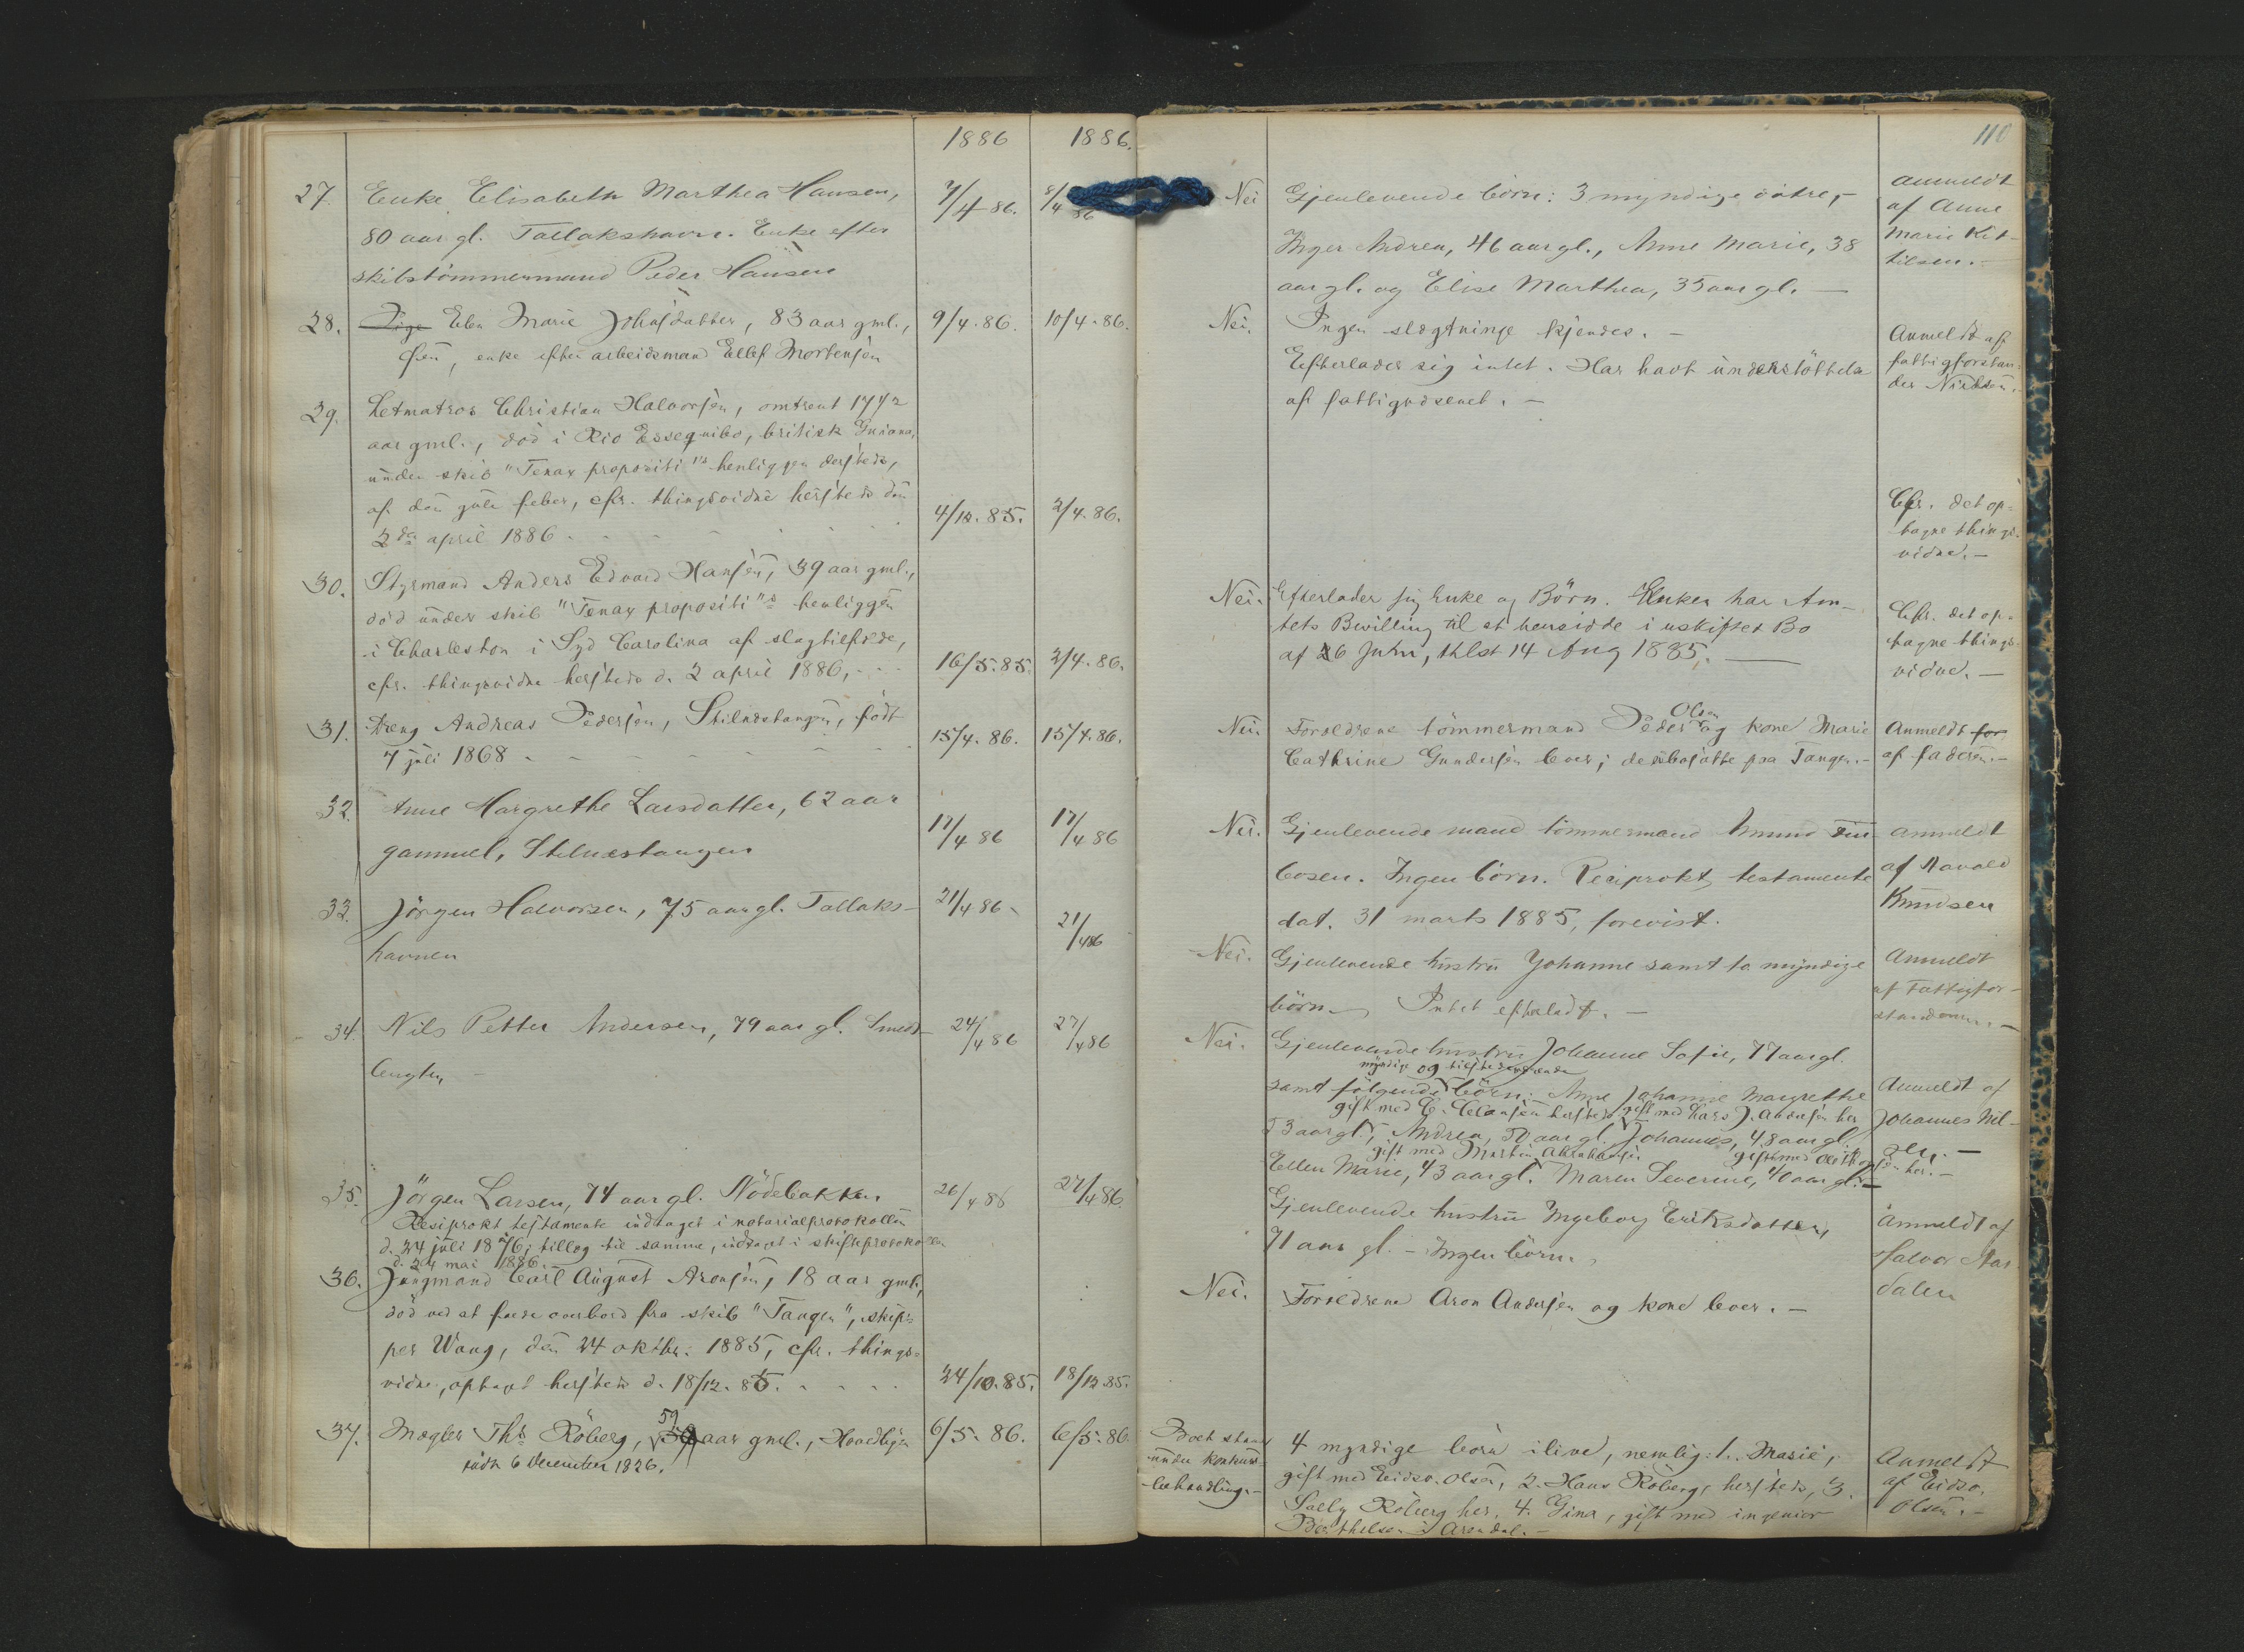 1886 1886.
27. Enke Elisabeth Marthea Hansen, 7/4 86. 8/4 86
80 aar gl. Tallakshavn. Enke efter
skibstömmermand Peder Hansen
28. Pige Elen Marie Johnsdatter, 83 aar gml., 9/4. 86. 10/4. 86.
enke efter arbeidsmand Ellef Mortensen
29. Letmatros Christian Halvorsen, omtrent 17 1/2
aar gml., död i Rio Essequibo, britisk Guiana,
under skib "Tenax propositi"s henliggen dersteds,
af den gule feber, cfr. thingsvidne hersteds den
2den april 1886 - - - 4/12. 85. 2/4. 86.
30. Styrmand Anders Edvard Hansen, 39 aar gml.,
död under skib "Tenax propositi"s henliggen
i Charleston i Syd Carolina af slagtilfælde,
cfr. thingsvidne hersteds d. 2 april 1886, - - - 16/5. 85. 2/4. 86.
31. dreng Andreas Pedersen, Stilnestangen, född 15/4. 86. 15/4. 86.
7 juli 1868 - - -
32. Anne Margrethe Larsdatter, 62 aar 17/4 86 17/4 86
gammel, Stilnestangen
33. Jörgen Halvorsen, 75 aar gl. Tallaks- 21/4 86 21/4 86
havnen
34. Nils Petter Andersen, 79 aar gl. Smeds- 24/4 86 27/4 86
bugten
35. Jörgen Larsen, 74 aar gl. Nödebakken 26/4 86 27/4 86
Resiprokt testamente indtaget i notarialprotokollen
d. 24 juli 1876; tillæg til samme, indtaget i skifteprotokollen
d. 24 mai 1886.
36. Jungmand Carl August Aronsen, 18 aar gml.,
död ved at falde overbord fra skib "Tangen", skip-
per Wang, den 24 oktbr. 1885, cfr. things-
vidne, optaget hersteds d. 18/12. 85. - - - 24/10. 85. 18/12. 85.
37. Mægler Ths Röberg, 59 aar gml., 6/5. 86. 6/5. 86.
född 6 December 1826.
110
Nei Gjenlevende börn: 3 myndige döttre,
Inger Andrea, 46 aar gl., Anne Marie, 38
aar gl. og Elise Marthea, 35 aar gl. —
anmeldt
af Anne
Marie Ket-
tilsen. —
Nei. Ingen slægtninge kjendes. —
Efterlader sig intet. Har havt understöttelse
af fattigvæsenet. —
Anmeldt af
fattigforstan-
der Nielsen. -
Cfr. det op-
tagne things-
vidne. —
Nei. Efterlader sig Enke og Börn. Enken har Am-
tets Bevilling til at hensidde i uskiftet Bo
af 26 Juni, thlst 14 Aug 1885. —
Cfr. det op-
tagne things-
vidne. —
Nei. Forældrene tömmermand Peder Olsen og kone Marie
Cathrine Gundersen lever; de er bosatte paa Tangen. -
Anmeldt for
af faderen. -
Nei. Gjenlevende mand tömmermand
Ingen börn. Reciprokt testamente
dat. 31 marts 1885, forevist.
anmeldt
af Navald
Knudsen
Nei. Gjenlevende hustru Johanne samt to myndige
börn. Intet efterladt. —
Anmeldt
af Fattigfor-
standeren. —
Nei. Gjenlevende hustru Johanne Sofie, 77 aar gl.
myndige og tilstedeværende
samt fölgende börn: Anne Johanne Margrethe
gift med C. Clausen hersteds gift med Lars J. Andersen her
53 aar gl., Andrea, 50 aar gl. Johannes, 48 aar gl.
gift med Martin Abrahamsen
Ellen Marie, 43 aar gl. Maren Severine, 40 aar gl. —
Anmeldt af
Johannes Nil-
sen. —
Gjenlevende hustru Ingeborg Eriksdatter,
71 aar gl. - Ingen börn.
Anmeldt af
Halvor Aas-
dalen
Nei. Forældrene Aron Andersen og kone lever. —
Boet staar
under konkurs-
behandling. -
4 myndige börn ilive, nemlig: 1. Marie,
gift med Eidsv. Olsen, 2. Hans Röberg, hersteds, 3.
Sally Röberg her, 4. Gina, gift med ingeniör
Berthelsen i Arendal. —
Anmeldt
af Eidsv.
Olsen. -